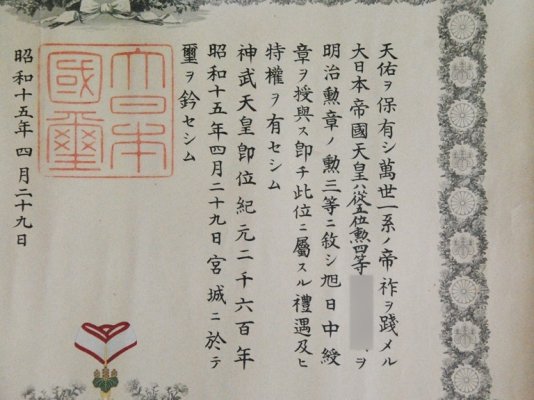 天佑ヲ保有シ萬世一系ノ帝祚ヲ踐メル
大日本帝國天皇ハ從五位勲四等
ヲ
明治勲章ノ勲三等ニ敘シ旭日中綬
章ヲ授與ス卽チ此位ニ屬スル禮遇及ヒ
特權ヲ有セシム
神武天皇卽位紀元二千六百年
昭和十五年四月二十九日宮城ニ於テ
璽ヲ鈐セシム
大日本
國璽
昭和十五年四月二十九日